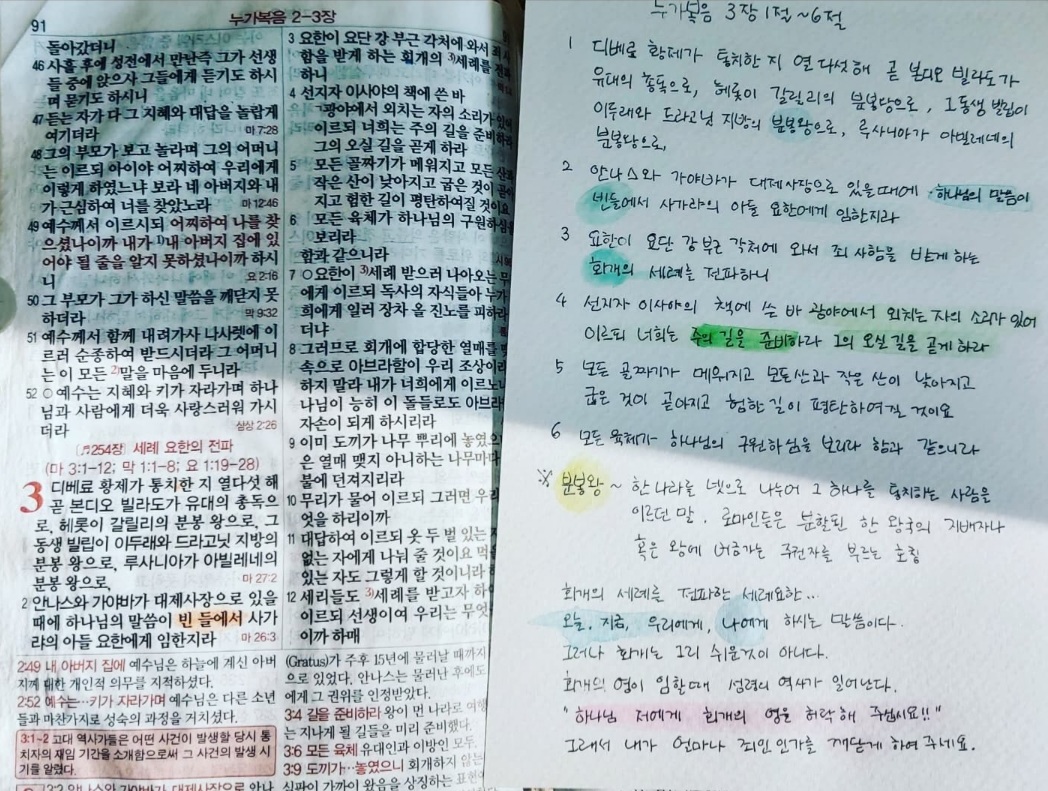 91
누가복음 2-3장
돌아갔더니
46 사흘 후에 성전에서 만난즉 그가 선생
들 중에 앉으사 그들에게 듣기도 하시
며 묻기도 하시니
47 듣는 자가 다 그 지혜와 대답을 놀랍게
여기더라 마 7:28
48 그의 부모가 보고 놀라며 그의 어머니
는 이르되 아이야 어찌하여 우리에게
이렇게 하였느냐 보라 네 아버지와 내
가 근심하여 너를 찾았노라 마 12:46
49 예수께서 이르시되 어찌하여 나를 찾
으셨나이까 내가 1)내 아버지 집에 있
어야 될 줄을 알지 못하셨나이까 하시
니 요 2:16
50 그 부모가 그가 하신 말씀을 깨닫지 못
하더라 막 9:32
51 예수께서 함께 내려가사 나사렛에 이
르러 순종하여 받드시더라 그 어머니
는 이 모든 2)말을 마음에 두니라
52 ○ 예수는 지혜와 키가 자라가며 하나
님과 사람에게 더욱 사랑스러워 가시
더라 삼상 2:26
[♬254장] 세례 요한의 전파
(마 3:1-12; 막 1:1-8; 요 1:19-28)
3 디베료 황제가 통치한 지 열다섯 해
곧 본디오 빌라도가 유대의 총독으
로, 헤롯이 갈릴리의 분봉 왕으로, 그
동생 빌립이 이두래와 드라고닛 지방의
분봉 왕으로, 루사니아가 아빌레네의
분봉 왕으로, 마 27:2
2 안나스와 가야바가 대제사장으로 있을
때에 하나님의 말씀이 빈 들에서 사가
랴의 아들 요한에게 임한지라 마 26:3
2:49 내 아버지 집에 예수님은 하늘에 계신 아버
지께 대한 개인적 의무를 지적하셨다.
2:52 예수는…키가 자라가며 예수님은 다른 소년
들과 마찬가지로 성숙의 과정을 거치셨다.
3:1-2 고대 역사가들은 어떤 사건이 발생할 당시 통
치자의 재임 기간을 소개함으로써 그 사건의 발생 시
기를 알렸다.
3 요한이 요단 강 부근 각처에 와서 죄 사
함을 받게 하는 회개의 3)세례를 전파
하니
4 선지자 이사야의 책에 쓴 바
광야에서 외치는 자의 소리가 있어
이르되 너희는 주의 길을 준비하라
그의 오실 길을 곧게 하라
5 모든 골짜기가 메워지고 모든 산과
작은 산이 낮아지고 굽은 것이 곧아
지고 험한 길이 평탄하여질 것이요
6 모든 육체가 하나님의 구원하심을
보리라
함과 같으니라
7 ○요한이 3)세례 받으러 나아오는 무
에게 이르되 독사의 자식들아 누가
희에게 일러 장차 올 진노를 피하라
더냐
8 그러므로 회개에 합당한 열매를 맺
속으로 아브라함이 우리 조상이라
하지 말라 내가 너희에게 이르노니
나님이 능히 이 돌들로도 아브라
자손이 되게 하시리라
9 이미 도끼가 나무 뿌리에 놓였으
은 열매 맺지 아니하는 나무마다
불에 던져지리라
10 무리가 물어 이르되 그러면 우리
엇을 하리이까
11 대답하여 이르되 옷 두 벌 있는
없는 자에게 나눠 줄 것이요 먹을
있는 자도 그렇게 할 것이니라 하
12 세리들도 3)세례를 받고자 하여
이르되 선생이여 우리는 무엇
이까 하매
(Gratus)가 주후 15년에 물러날 때까지
으로 있었다. 안나스는 물러난 후에도
에게 그 권위를 인정받았다.
3:4 길을 준비하라 왕이 먼 나라로 여행
는 지나게 될 길들을 미리 준비했다.
3:6 모든 육체 유대인과 이방인 모두.
3:9 도끼가…놓였으니 회개하지 않는
심판이 가까이 왔음을 상징하는 표현
누가복음 3장 1절~6절
1 디베료 황제가 통치한 지 열 다섯해 곧 본디오 빌라도가
유대의 총독으로, 헤롯이 갈릴리의 분봉왕으로, 그동생 빌립이
이두래와 드라고닛 지방의 분봉왕으로, 루사니아가 아빌레네의
분봉왕으로,
2 안나스와 가야바가 대제사장으로 있을때에 하나님의 말씀이
빈들에서 사가랴의 아들 요한에게 임한지라
3 요한이 요단 강 부근 각처에 와서 죄 사함을 받게 하는
회개의 세례를 전파하니
4 선지자 이사야의 책에 쓴 바 광야에서 외치는 자의 소리가 있어
이르되 너희는 주의 길을 준비하라 그의 오실 길을 곧게 하라
5 모든 골짜기가 메워지고 모든산과 작은 산이 낮아지고
굽은 것이 곧아지고 험한 길이 평탄하여질 것이요
6 모든 육체가 하나님의 구원하심을 보리라 함과 같으니라
※ 분봉왕 ~ 한 나라를 넷으로 나누어 그 하나를 통치하는 사람을
이르던 말. 로마인들은 분할된 한 왕국의 지배자나
혹은 왕에 버금가는 주권자를 부르는 호칭
회개의 세례를 전파한 세례요한...
오늘, 지금, 우리에게, 나에게 하시는 말씀이다.
그러나 회개는 그리 쉬운것이 아니다.
회개의 영이 임할때 성령의 역사가 일어난다.
"하나님 저에게 회개의 영을 허락해 주십시요!!"
그래서 내가 얼마나 죄인 인가를 깨닫게 하여 주세요.